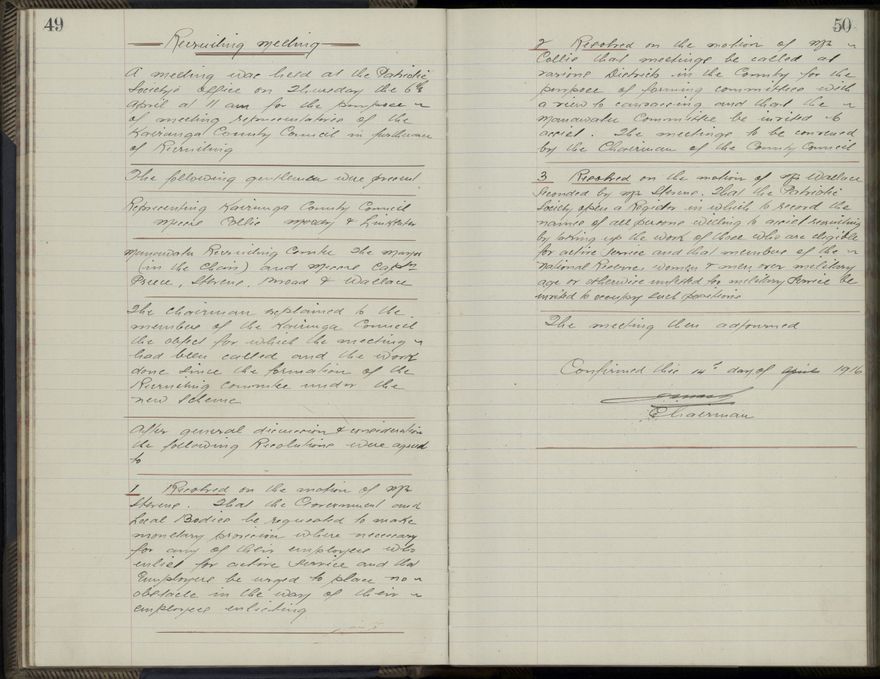 49
Recruiting meeting
A meeting was held at the Patriotic
Society's Office on Thursday the 6th
April at 11 am for the purpose
of meeting representatives of the
Kairanga County Council in furtherance
of Recruiting
The following gentlemen were present
Representing Kairanga County Council
Messrs Collis Moody &
Manawatu Recruiting Comtee The Mayor
(in the Chair) and Messrs Captn
Preece, Stevens, Broad & Wallace
The Chairman explained to the
members of the Kairanga Council
the object for which the meeting
had been called and the work
done since the formation of the
Recruiting Commtee under the
new scheme
After general discussion & consideration
the following Resolutions were agreed
to
1 Resolved on the motion of Mr
Stevens. That the Government and
Local Bodies be requested to make
monetary provision where necessary
for any of their employees who
enlist for active service and that
Employers be urged to place no
obstacle in the way of their
employees enlisting
50
2 Resolved on the motion of Mr
Collis that meetings be called at
various Districts in the County for the
purpose of forming committees with
a view to canvassing and that the
Manawatu Committee be invited to
assist. The meetings to be convened
by the Chairman of the County Council
3 Resolved on the motion of Mr Wallace
seconded by Mr Stevens. That the Patriotic
Society open a Register in which to record the
names of all persons willing to assist recruiting
by taking up the work of those who are eligible
for active service and that members of the
National Reserve, women & men over military
age or otherwise unfitted for military service be
invited to occupy such positions
The meeting then adjourned
Confirmed this 14th day of April 1916
Chairman